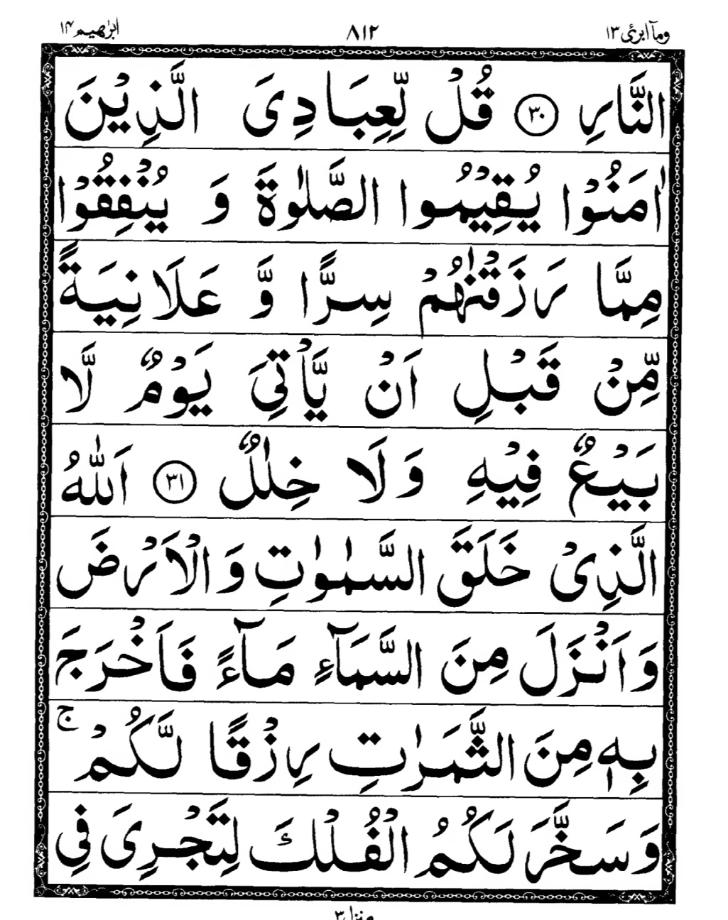 ابرٰهیم ۱۴ ۸۱۲ ومآ ابرئ ۱۳
النَّارِ ۝۳۰ قُلْ لِّعِبَادِیَ الَّذِیْنَ
اٰمَنُوْا یُقِیْمُوا الصَّلٰوةَ وَ یُنْفِقُوْا
مِمَّا رَزَقْنٰهُمْ سِرًّا وَّ عَلَانِیَةً
مِّنْ قَبْلِ اَنْ یَّاْتِیَ یَوْمٌ لَّا
بَیْعٌ فِیْهِ وَلَا خِلٰلٌ ۝۳۱ اَللّٰهُ
الَّذِیْ خَلَقَ السَّمٰوٰتِ وَالْاَرْضَ
وَاَنْزَلَ مِنَ السَّمَآءِ مَآءً فَاَخْرَجَ
بِهٖ مِنَ الثَّمَرٰتِ رِزْقًا لَّكُمْ ۚ
وَسَخَّرَ لَكُمُ الْفُلْكَ لِتَجْرِیَ فِی
منزل ۳